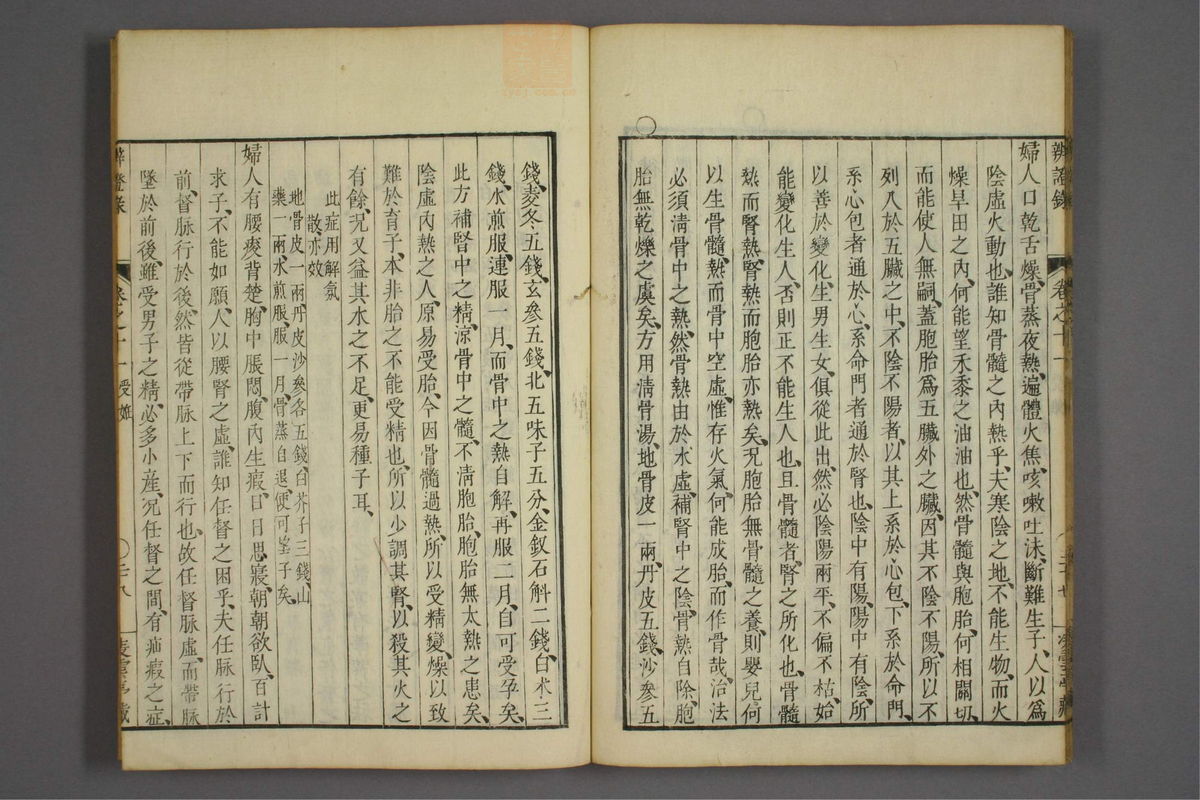 辨證錄 卷之十一
婦人口乾舌燥、骨蒸夜熱、遍體火焦、咳嗽吐沫、斷難生子、人以為
陰虛火動也、誰知骨髓之內熱乎、夫寒陰之地、不能生物、而火
燥旱田之內、何能望禾黍之油油也、然骨髓與胞胎何相關切、
而能使人無嗣、蓋胞胎爲五臟外之臟、因其不陰不陽、所以不
列入於五臟之中、不陰不陽者、以其上系於心包、下系於命門、
系心包者通於心、系命門者通於腎也、陰中有陽、陽中有陰、所
以善於變化、生男生女、俱從此出、然必陰陽兩平、不偏不枯、始
能變化生人、否則正不能生人也、且骨髓者、腎之所化也、骨髓
熱而腎熱、腎熱而胞胎亦熱矣、況胞胎無骨髓之養、則嬰兒何
以生骨髓、熱而骨中空虛、惟存火氣、何能成胎而作骨哉、治法
必須清骨中之熱、然骨熱由於水虛、補腎中之陰、骨熱自除、胞
胎無乾爍之虞矣、方用清骨湯、地骨皮一兩、丹皮五錢、沙參五
錢、麥冬五錢、玄參五錢、北五味子五分、金釵石斛二錢、白朮三
錢、水煎服、連服一月、而骨中之熱自解、再服二月、自可受孕矣、
此方補腎中之精、涼骨中之髓、不清胞胎、胞胎無太熱之患矣、
陰虛內熱之人、原易受胎、今因骨髓過熱、所以受精變燥、以致
難於育子、本非胎之不能受精也、所以少調其腎、以殺其火之
有餘、況又益其水之不足、更易種子耳、
此症用解氛
散亦效
地骨皮一兩、丹皮沙參各五錢、白芥子三錢、山
藥一兩、水煎服、服一月、骨蒸自退、便可望子矣、
婦人有腰痠背楚、胸中脹悶、腹內生瘕、日日思寢、朝朝欲臥、百計
求子、不能如願、人以腰腎之虛、誰知任督之困乎、夫任脉行於
前、督脉行於後、然皆從帶脉上下而行也、故任督脉虛、而帶脉
墜於前後、雖受男子之精、必多小產、況任督之間、有疝瘕之症、
辨證錄 卷之十一 受妊 二十八